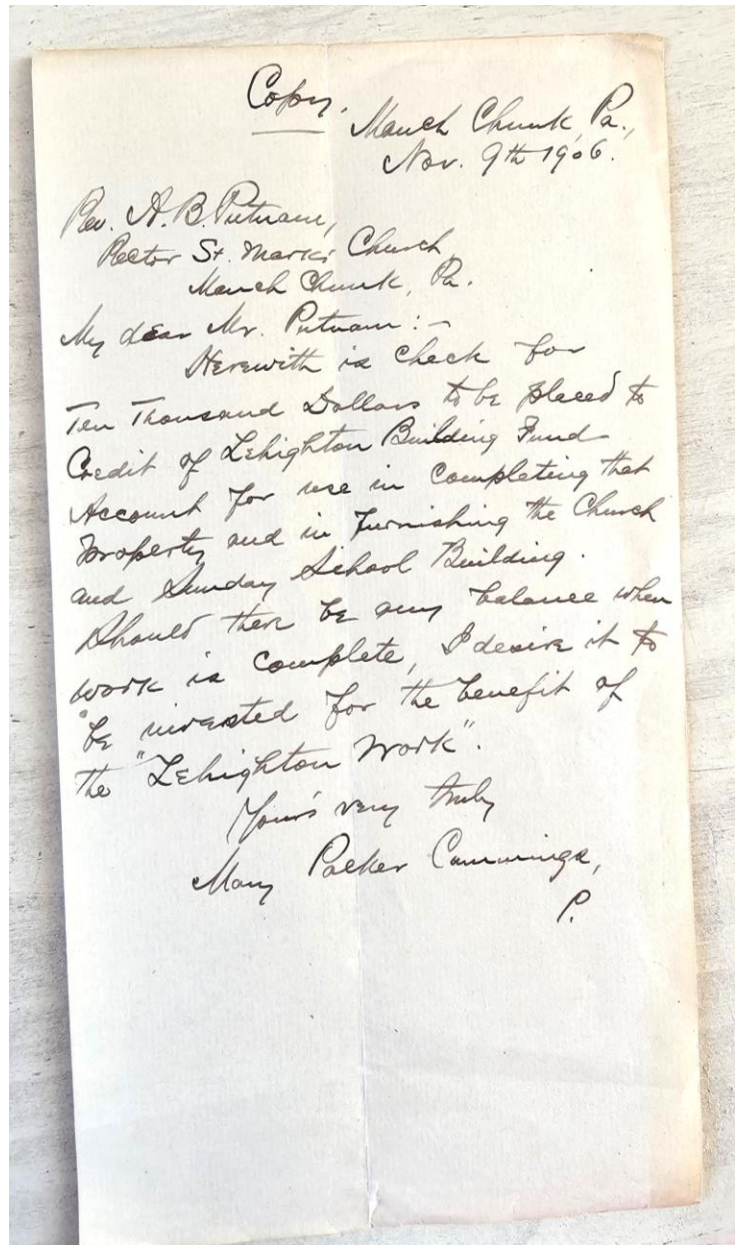 Copy.
Mauch Chunk, Pa.,
Nov. 9th 1906.
Rev. A. B. Putnam,
Rector St. Marks Church,
Mauch Chunk, Pa.
My dear Mr. Putnam:-
Herewith is Check for
Ten Thousand Dollars to be placed to
Credit of Lehighton Building Fund
Account for use in completing that
Property and in furnishing the Church
and Sunday School Building.
Should there be any balance when
work is complete, I desire it to
be invested for the benefit of
the "Lehighton Work".
Yours very truly
Mary Packer Cummings,
P.